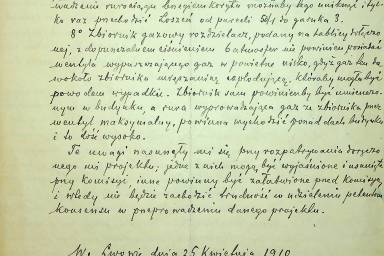 wadzeniu rurociągu brzegiem koryta możnaby tego uniknąć i tyl-
ko raz przechodzić Łoszeń od parceli 50/1 do gazowa 3.
8° Zbiornik gazowy rozdzielacz, podany na tablicy dołączo-
nej, z dopuszczalnem ciśnieniem 6 atmosfer nie powinien posiadać
wentyla wypuszczającego gaz w powietrze nisko, gdyż gaz ten da
wokoło zbiornika mieszaninę explodującą, któraby mogła być
powodem wypadku. Zbiornik sam powinienby być umieszczo-
nym w budynku, a rura wyprowadzająca gaz ze zbiornika przez
wentyl maksymalny, powinna wychodzić ponad dach budynku
i to dość wysoko.
Te uwagi nasunęły mi się przy rozpatrywaniu doręczo-
nego mi projektu; jedne z nich mogą być wyjaśnione i usunięte
przy komisyi, inne powinny być załatwione przed komisyą,
i wtedy nie będzie zachodzić trudność w udzieleniu petentom
konsensu w przeprowadzeniu danego projektu.
We Lwowie dnia 25 Kwietnia 1910.